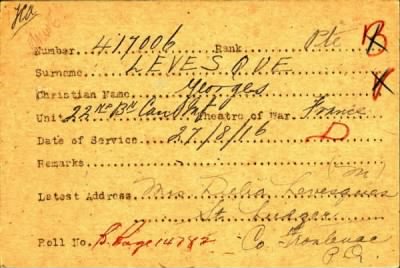 Number 417006 Rank Pte B
Surname LEVESQUE
Christian Name Georges
Unit 22nd Bn Can Inf Theatre of War. France
Date of Service 27/8/16 D
Remarks
(M)
Latest Address Mrs Delia Levesque
St. Ludger
Roll No. B. Page 14782 Co. Frontenac
P.Q.